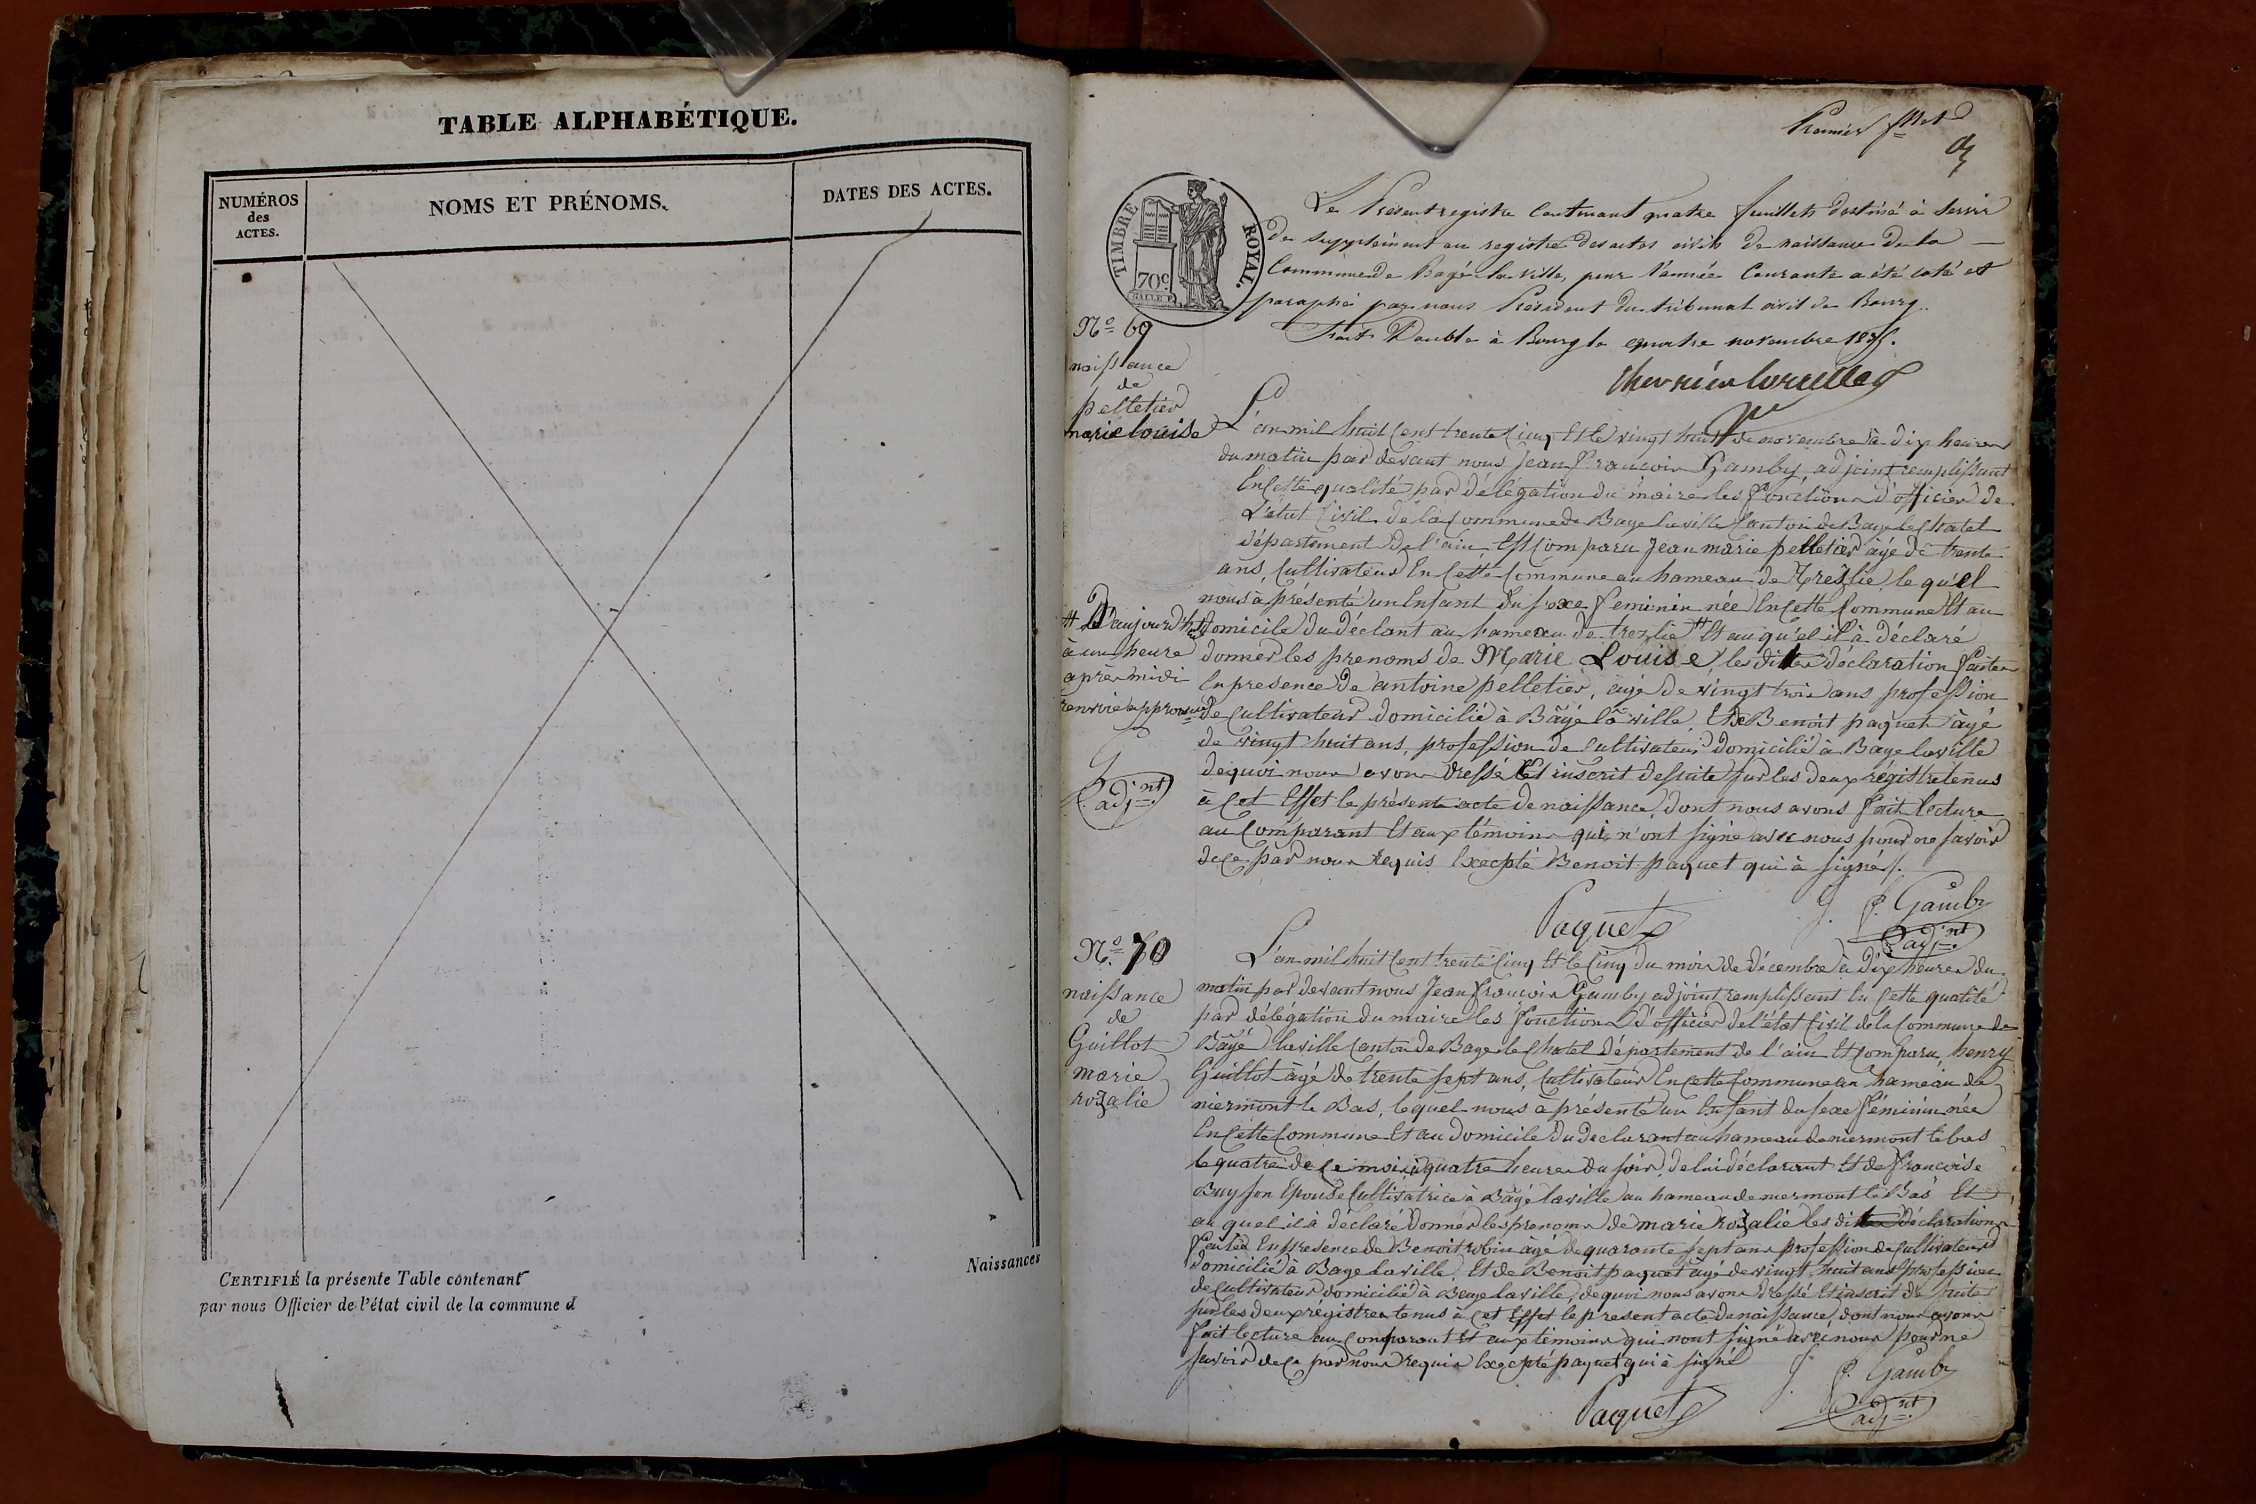 TABLE ALPHABÉTIQUE.
NUMÉROS
des
ACTES.
NOMS ET PRÉNOMS.
DATES DES ACTES.
CERTIFIÉ la présente Table contenant
par nous Officier de l'état civil de la commune d
Naissances
Premier
TIMBRE ROYAL.
70c
Le Présent registre Contenant quatre feuillets destiné à Servir
de supplément au registre des actes civils de naissance de la
Commune de Bagé la ville, pour l'année Courante a été coté et
paraphé par nous Président du tribunal civil de Bourg.
Fait Double à Bourg le quatre novembre 1835.
No 69
naissance
de
pelletier
marie louise
L'an mil huit Cent trente Cinq Et le vingt huit de novembre à dix heures
du matin par devant nous Jean François Gamby adjoint remplissant
En Cette qualité par délégation du maire les fonctions d'officier de
L'état Civil de la Commune de Bage la ville Canton de Bage le Chatel
département de l'ain, Est Comparu Jean marie pelletier âgé de trente
ans, Cultivateur En Cette Commune au hameau de Trezlie, le qu'el
nous à présenté un Enfant du sexe feminin née En Cette Commune Et au
domicile du déclant au hameau de trezlie # Et au qu'el il à déclaré
donner les prenoms de Marie Louise, les dites déclaration faites
En presence de antoine pelletier, âgé de vingt trois ans profession
de Cultivateur domicilié à Bâgé lâ ville, Et de Benoit paquet âgé
de vingt huit ans, profession de Cultivateur domicilié à Bage la ville
de quoi nous avons dressé Et inscrit de suite sur les deux régistre tenus
à Cet Effet le présente acte de naissance, dont nous avons fait lecture
au Comparant Et aux témoins qui n'ont signé avec nous pour ne savoir
de ce par nous requis Excepté Benoit paquet qui à signé /.
# D'aujourd'hui
à une heure
après midi
renvoie approuvé
G
adjnt
Paquet
J. f. Gamby
adjnt
No 70
naissance
de
Guillot
marie
rozalie
L'an mil huit Cent trente Cinq Et le Cinq du mois de décembre à dix heures du
matin par devant nous Jean françois Gamby adjoint remplissant En Cette qualité
par délégation du maire les fonctions d'officier de l'état Civil de la Commune de
Bâgé la ville Canton de Bage le Chatel département de l'ain Et Comparu, henry
Guillot âgé de trente sept ans, Cultivateur En Cette Commune au hameau de
niermont le Bas, lequel nous à présenté un Enfant du sexe féminin née
En Cette Commune Et au domicile du declarant au hameau de niermont le bas
le quatre de Ce mois à quatre heures du soir, de lui déclarant Et de françoise
Buy son Epouse Cultivatrice à Bâgé la ville au hameau de niermont le Bas Et
au quel il à déclaré donner les prenoms de marie rozalie les dites déclarations
faites En presence de Benoit robin âgé de quarante sept ans profession de Cultivateur
domicilié à Bage la ville, Et de Benoit paquet âgé de vingt huit ans profession
de Cultivateur domicilié à Bage la ville, de quoi nous avons dressé Et inscrit de suite
sur les deux régistres tenus à Cet Effet le present acte de naissance, dont nous avons
fait lecture au Comparant Et aux témoins qui nont signé avec nous pour ne
savoir de Ce par nous requis Excepté paquet qui à signé
Paquet
J. f. Gamby
adjnt